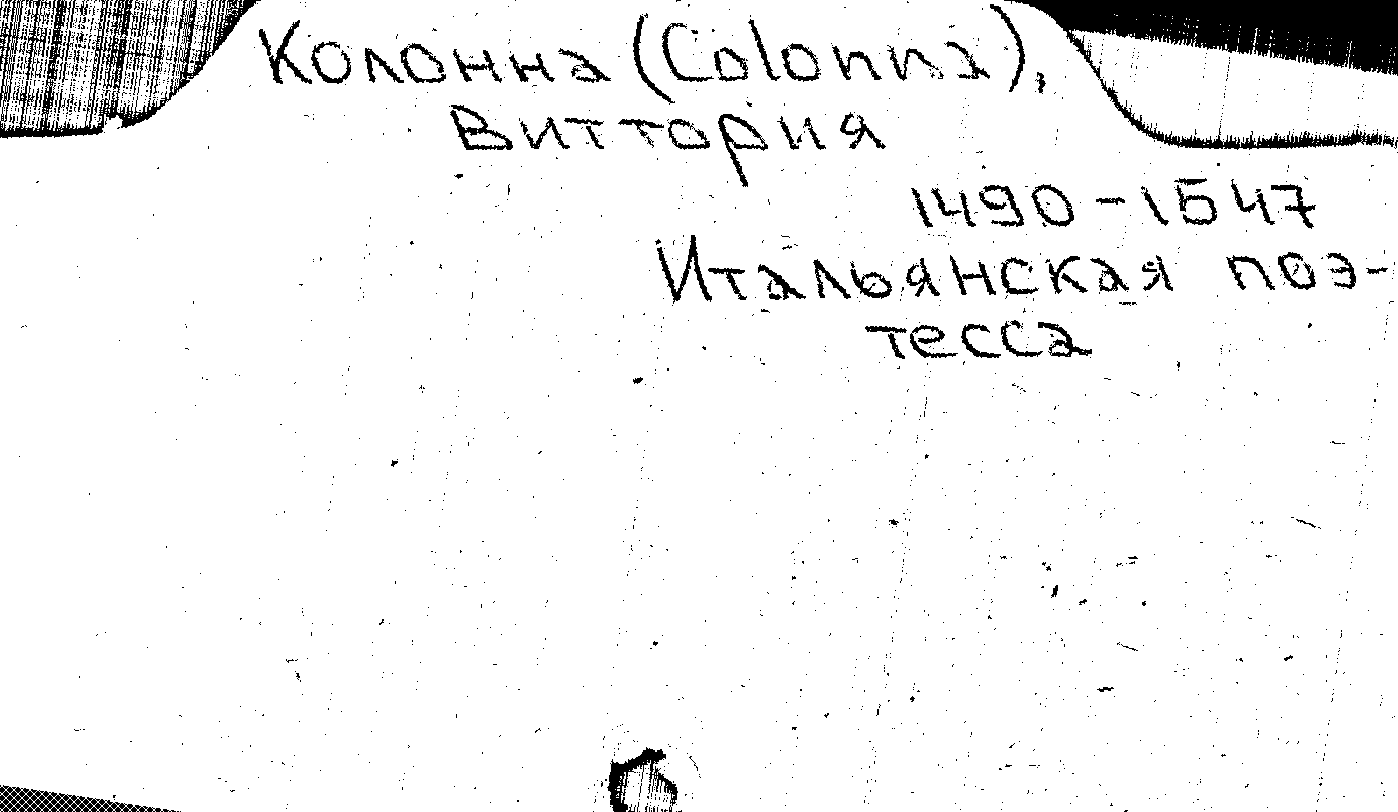 Колонна (Colonna),
Виттория
1490-1547
Итальянская поэ-
тесса